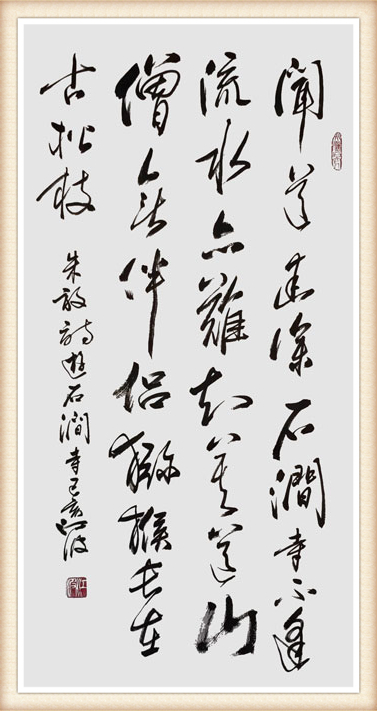 聞道幽深石澗寺不逢
流水亦難知莫道山
僧無伴侶猕猴長在
古松枝
朱放詩遊石澗寺己亥江波